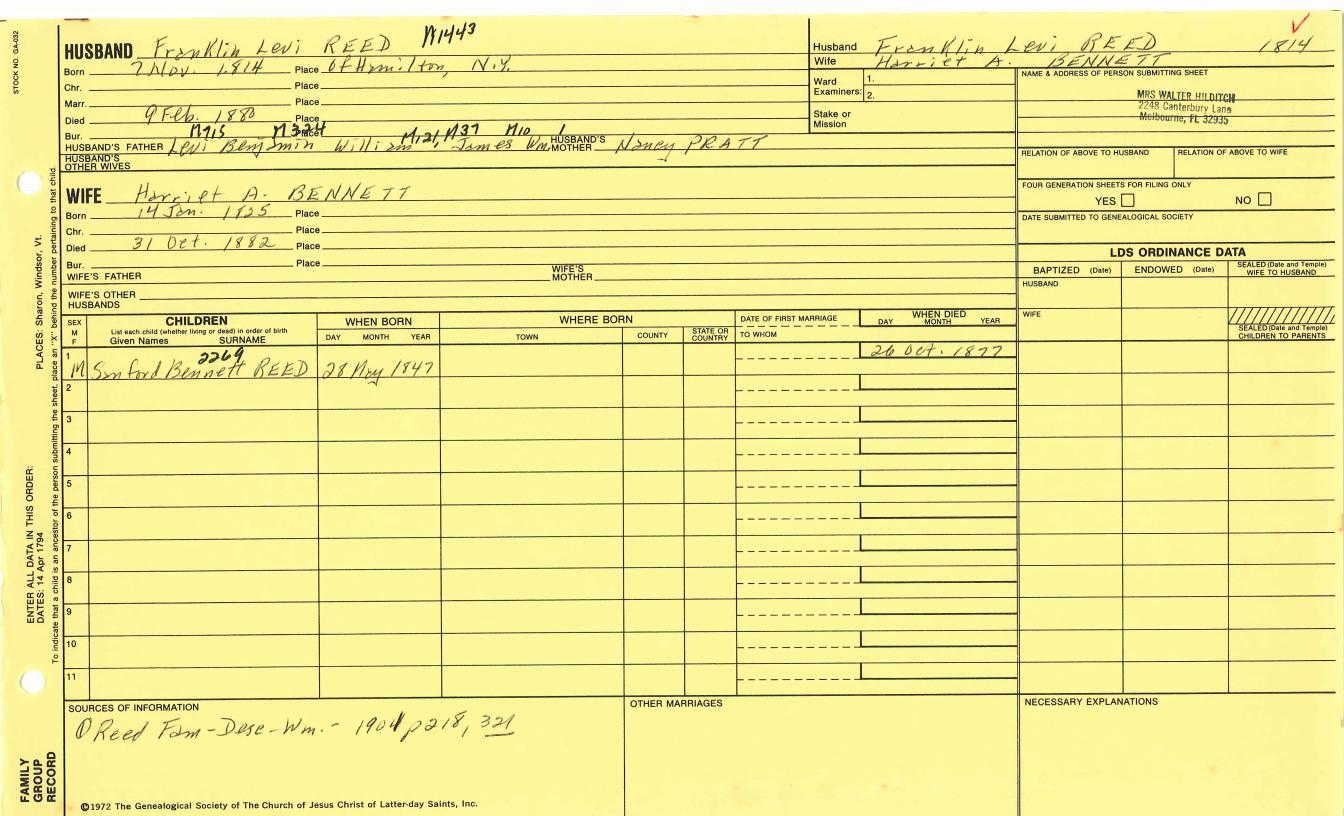 STOCK NO. GA-032
PLACES: Sharon, Windsor, Vt.
ENTER ALL DATA IN THIS ORDER:
DATES: 14 Apr 1794
To indicate that a child is an ancestor of the person submitting the sheet, place an "X" behind the number pertaining to that child.
FAMILY GROUP RECORD
HUSBAND Franklin Levi REED N1443
Born 7 Nov. 1814 Place Of Hamilton, N.Y.
Chr. Place
Marr. Place
Died 9 Feb. 1880 Place
Bur. Place
M715 M324 M121, M37 M10 1
HUSBAND'S FATHER Levi Benjamin William James Wm. HUSBAND'S MOTHER Nancy PRATT
HUSBAND'S OTHER WIVES
WIFE Harriet A. BENNETT
Born 14 Jan. 1825 Place
Chr. Place
Died 31 Oct. 1882 Place
Bur. Place
WIFE'S FATHER WIFE'S MOTHER
WIFE'S OTHER HUSBANDS
Husband Franklin Levi REED 1814
Wife Harriet A. BENNETT
Ward Examiners: 1. 2.
Stake or Mission
NAME & ADDRESS OF PERSON SUBMITTING SHEET
MRS WALTER HILDITCH
2248 Canterbury Lane
Melbourne, FL 32935
RELATION OF ABOVE TO HUSBAND RELATION OF ABOVE TO WIFE
FOUR GENERATION SHEETS FOR FILING ONLY
YES NO
DATE SUBMITTED TO GENEALOGICAL SOCIETY
LDS ORDINANCE DATA
BAPTIZED (Date) ENDOWED (Date) SEALED (Date and Temple) WIFE TO HUSBAND
HUSBAND
WIFE
SEALED (Date and Temple) CHILDREN TO PARENTS
SEX M F
CHILDREN
List each child (whether living or dead) in order of birth
Given Names SURNAME
WHEN BORN
DAY MONTH YEAR
WHERE BORN
TOWN COUNTY STATE OR COUNTRY
DATE OF FIRST MARRIAGE
TO WHOM
WHEN DIED
DAY MONTH YEAR
1 2269 26 Oct. 1877
M Sanford Bennett REED 28 May 1847
2
3
4
5
6
7
8
9
10
11
SOURCES OF INFORMATION
① Reed Fam-Desc-Wm.- 1901 p218, 321
OTHER MARRIAGES
NECESSARY EXPLANATIONS
©1972 The Genealogical Society of The Church of Jesus Christ of Latter-day Saints, Inc.